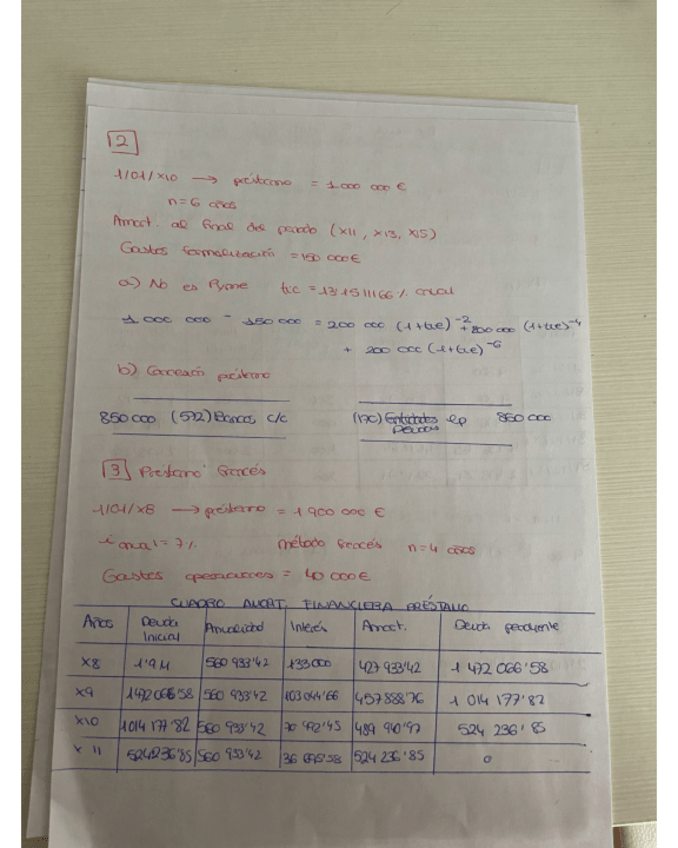 2
1/01/x10 → préstamo = 1.000 000 €
n=6 años
Amort. al final del periodo (x11, x13, x15)
Gastos formalización = 150 000€
a) No es Pyme tie = 13'1511166% anual
1 000 000 - 150 000 = 200 000 (1+tie)⁻² + 800 000 (1+tie)⁻⁴
+ 200 000 (1+tie)⁻⁶
b) Concesión préstamo
850 000 (572) Bancos c/c (170) Entidades lp 850 000
Deudas
3 Préstamo francés
1/01/x8 → préstamo = 1 900 000 €
i anual = 7% método francés n=4 años
Gastos operaciones = 40 000€
CUADRO AMORT. FINANCIERA PRÉSTAMO
Años Deuda Inicial Anualidad Interés Amort. Deuda pendiente
x8 1'9 M 560 933'42 133 000 427 933'42 1 472 066'58
x9 1472 066'58 560 933'42 103 044'66 457 888'76 1 014 177'82
x10 1014 177'82 560 933'42 70 992'45 489 940'97 524 236'85
x11 524236'85 560 933'42 36 695'58 524 236'85 0